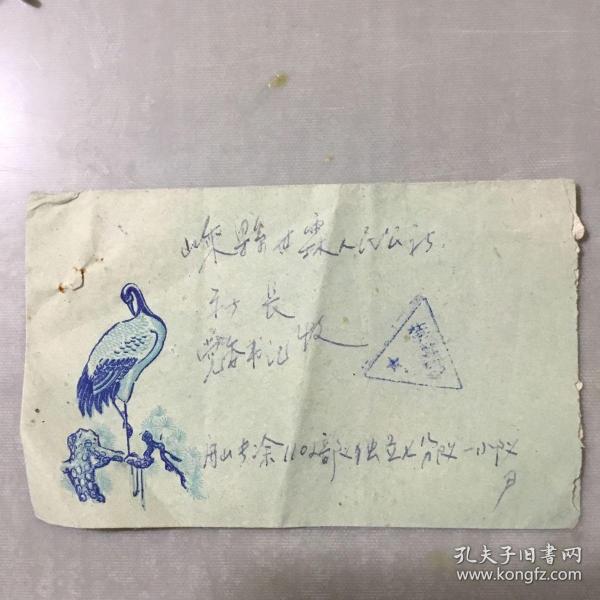 嵊縣甘霖人民公社
社長
党委书记 收
舟山 1102部队独立七分队一小队
孔夫子旧書网
www.kongfz.com